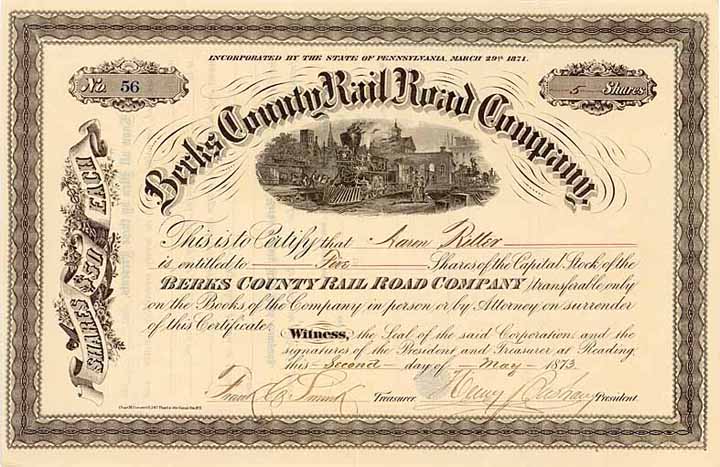 INCORPORATED BY THE STATE OF PENNSYLVANIA, MARCH 29TH 1871.
No. 56
5 Shares
Berks County Rail Road Company,
SHARES $50 EACH
This is to Certify that Aaron Ritter
is entitled to Five Shares of the Capital Stock of the
BERKS COUNTY RAIL ROAD COMPANY, transferable only
on the Books of the Company in person or by Attorney on surrender
of this Certificate.
Witness, the Seal of the said Corporation and the
signatures of the President and Treasurer at Reading
this Second day of May 1873
Frank Treasurer Henry President.